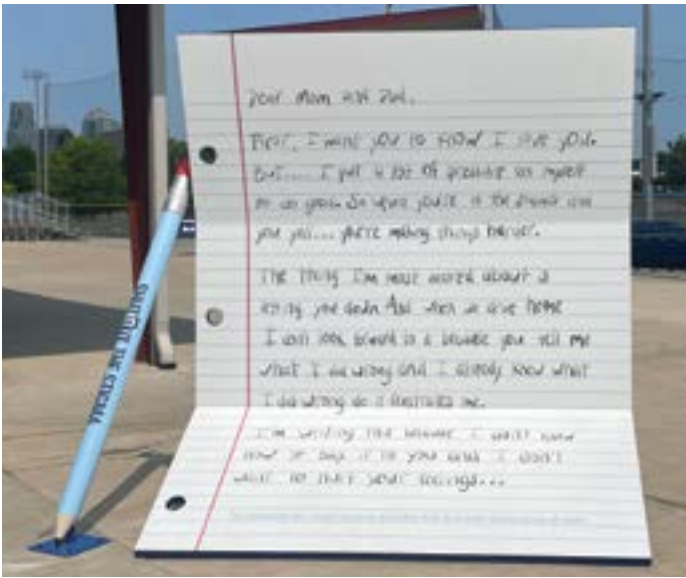 Dear Mom and Dad,
First, I want you to know I love you.
But.... I put a lot of pressure on myself
as you're in the stands and
you yell... you're making things harder.
The thing I'm most worried about is
letting you down. And when we drive home
I don't look forward to it because you tell me
what I did wrong and I already know what
I did wrong so it frustrates me.
I'm writing this because I don't know
how to say it to you and I don't
want to hurt your feelings...